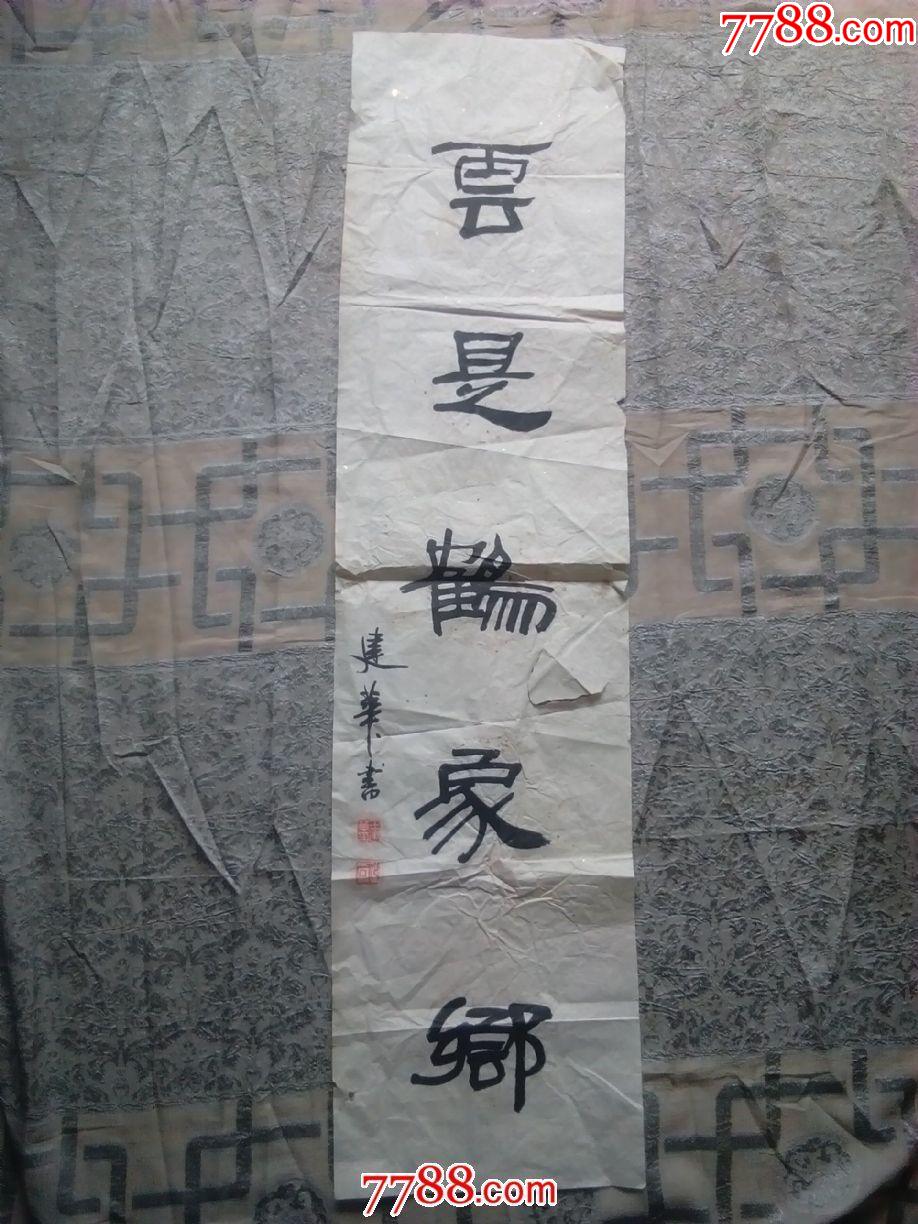 7788.com
雲是鶴象鄉
建華書
7788.com